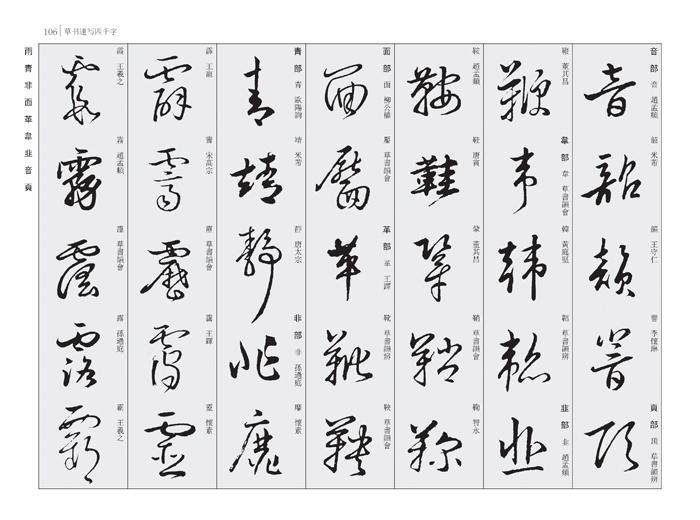 106 草书速写四千字
雨 青 非 面 革 韋 韭 音 頁
音部 音 趙孟頫
韶 米芾
韻 王守仁
響 李懷琳
頁部 頂 草書韻辨
鞭 董其昌
韋部 韋 草書韻會
韓 黃庭堅
韜 草書韻辨
韭部 韭 趙孟頫
鞍 趙孟頫
鞋 唐寅
鞏 董其昌
鞘 草書韻會
鞠 智永
面部 面 柳公權
靨 草書韻會
革部 革 王鐸
靴 草書韻辨
鞅 草書韻會
青部 青 歐陽詢
靖 米芾
靜 唐太宗
非部 非 孫過庭
靡 懷素
霹 王寵
霄 宋高宗
靂 草書韻會
靄 王鐸
靈 懷素
霞 王羲之
霧 趙孟頫
草書韻會
露 孫過庭
霸 王羲之